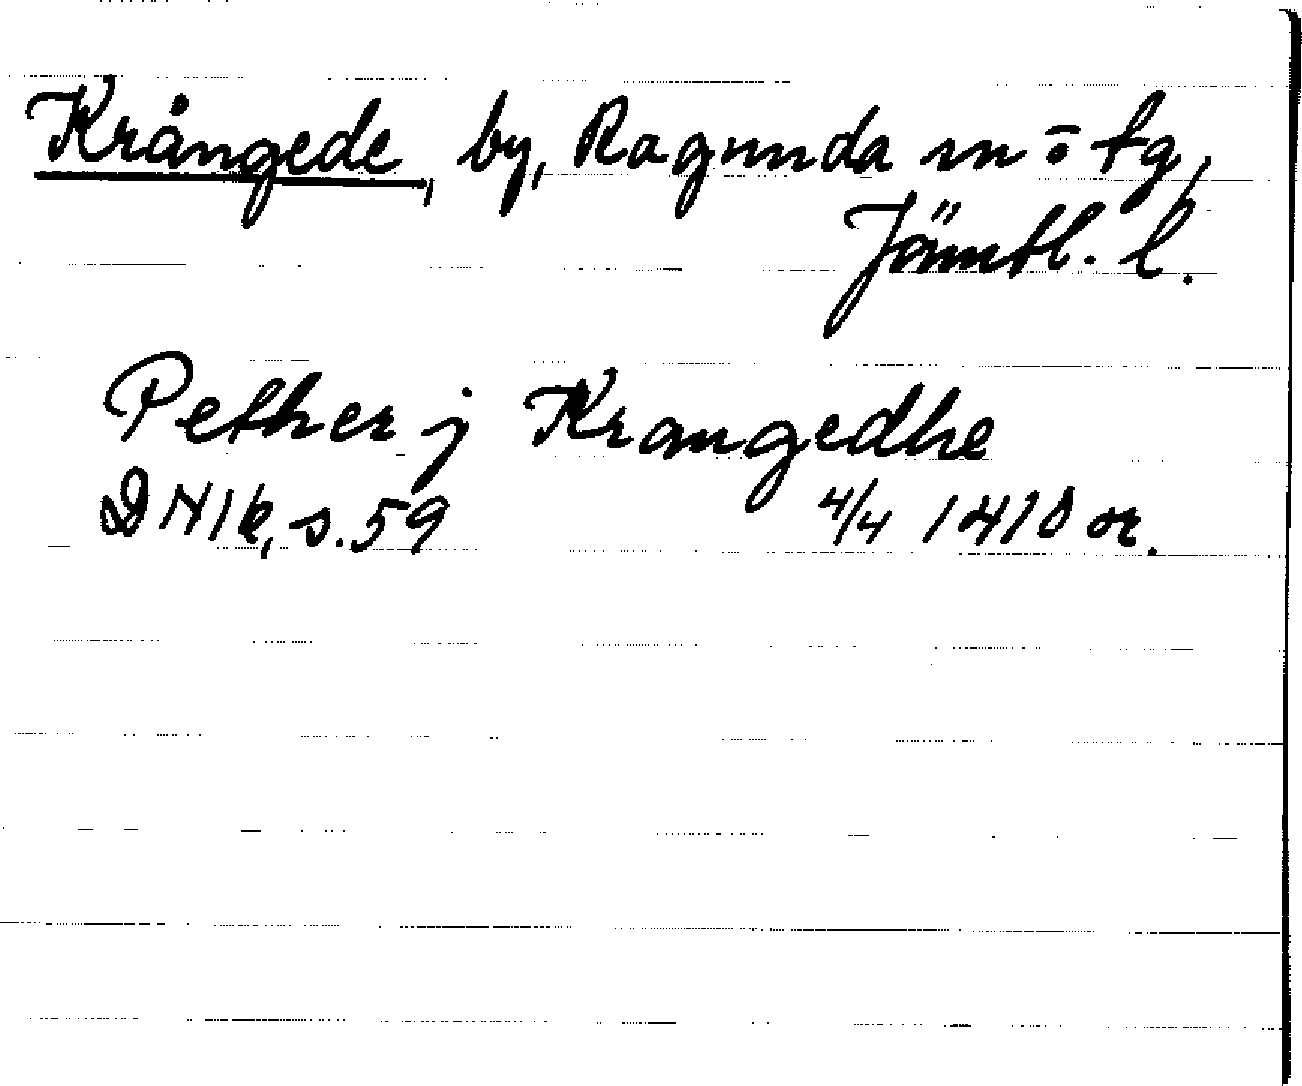 Krångede, by, Ragunda sn o tg,
Jämtl. l.
Pether j Krangedhe
s. 59 4/4 1410 or.